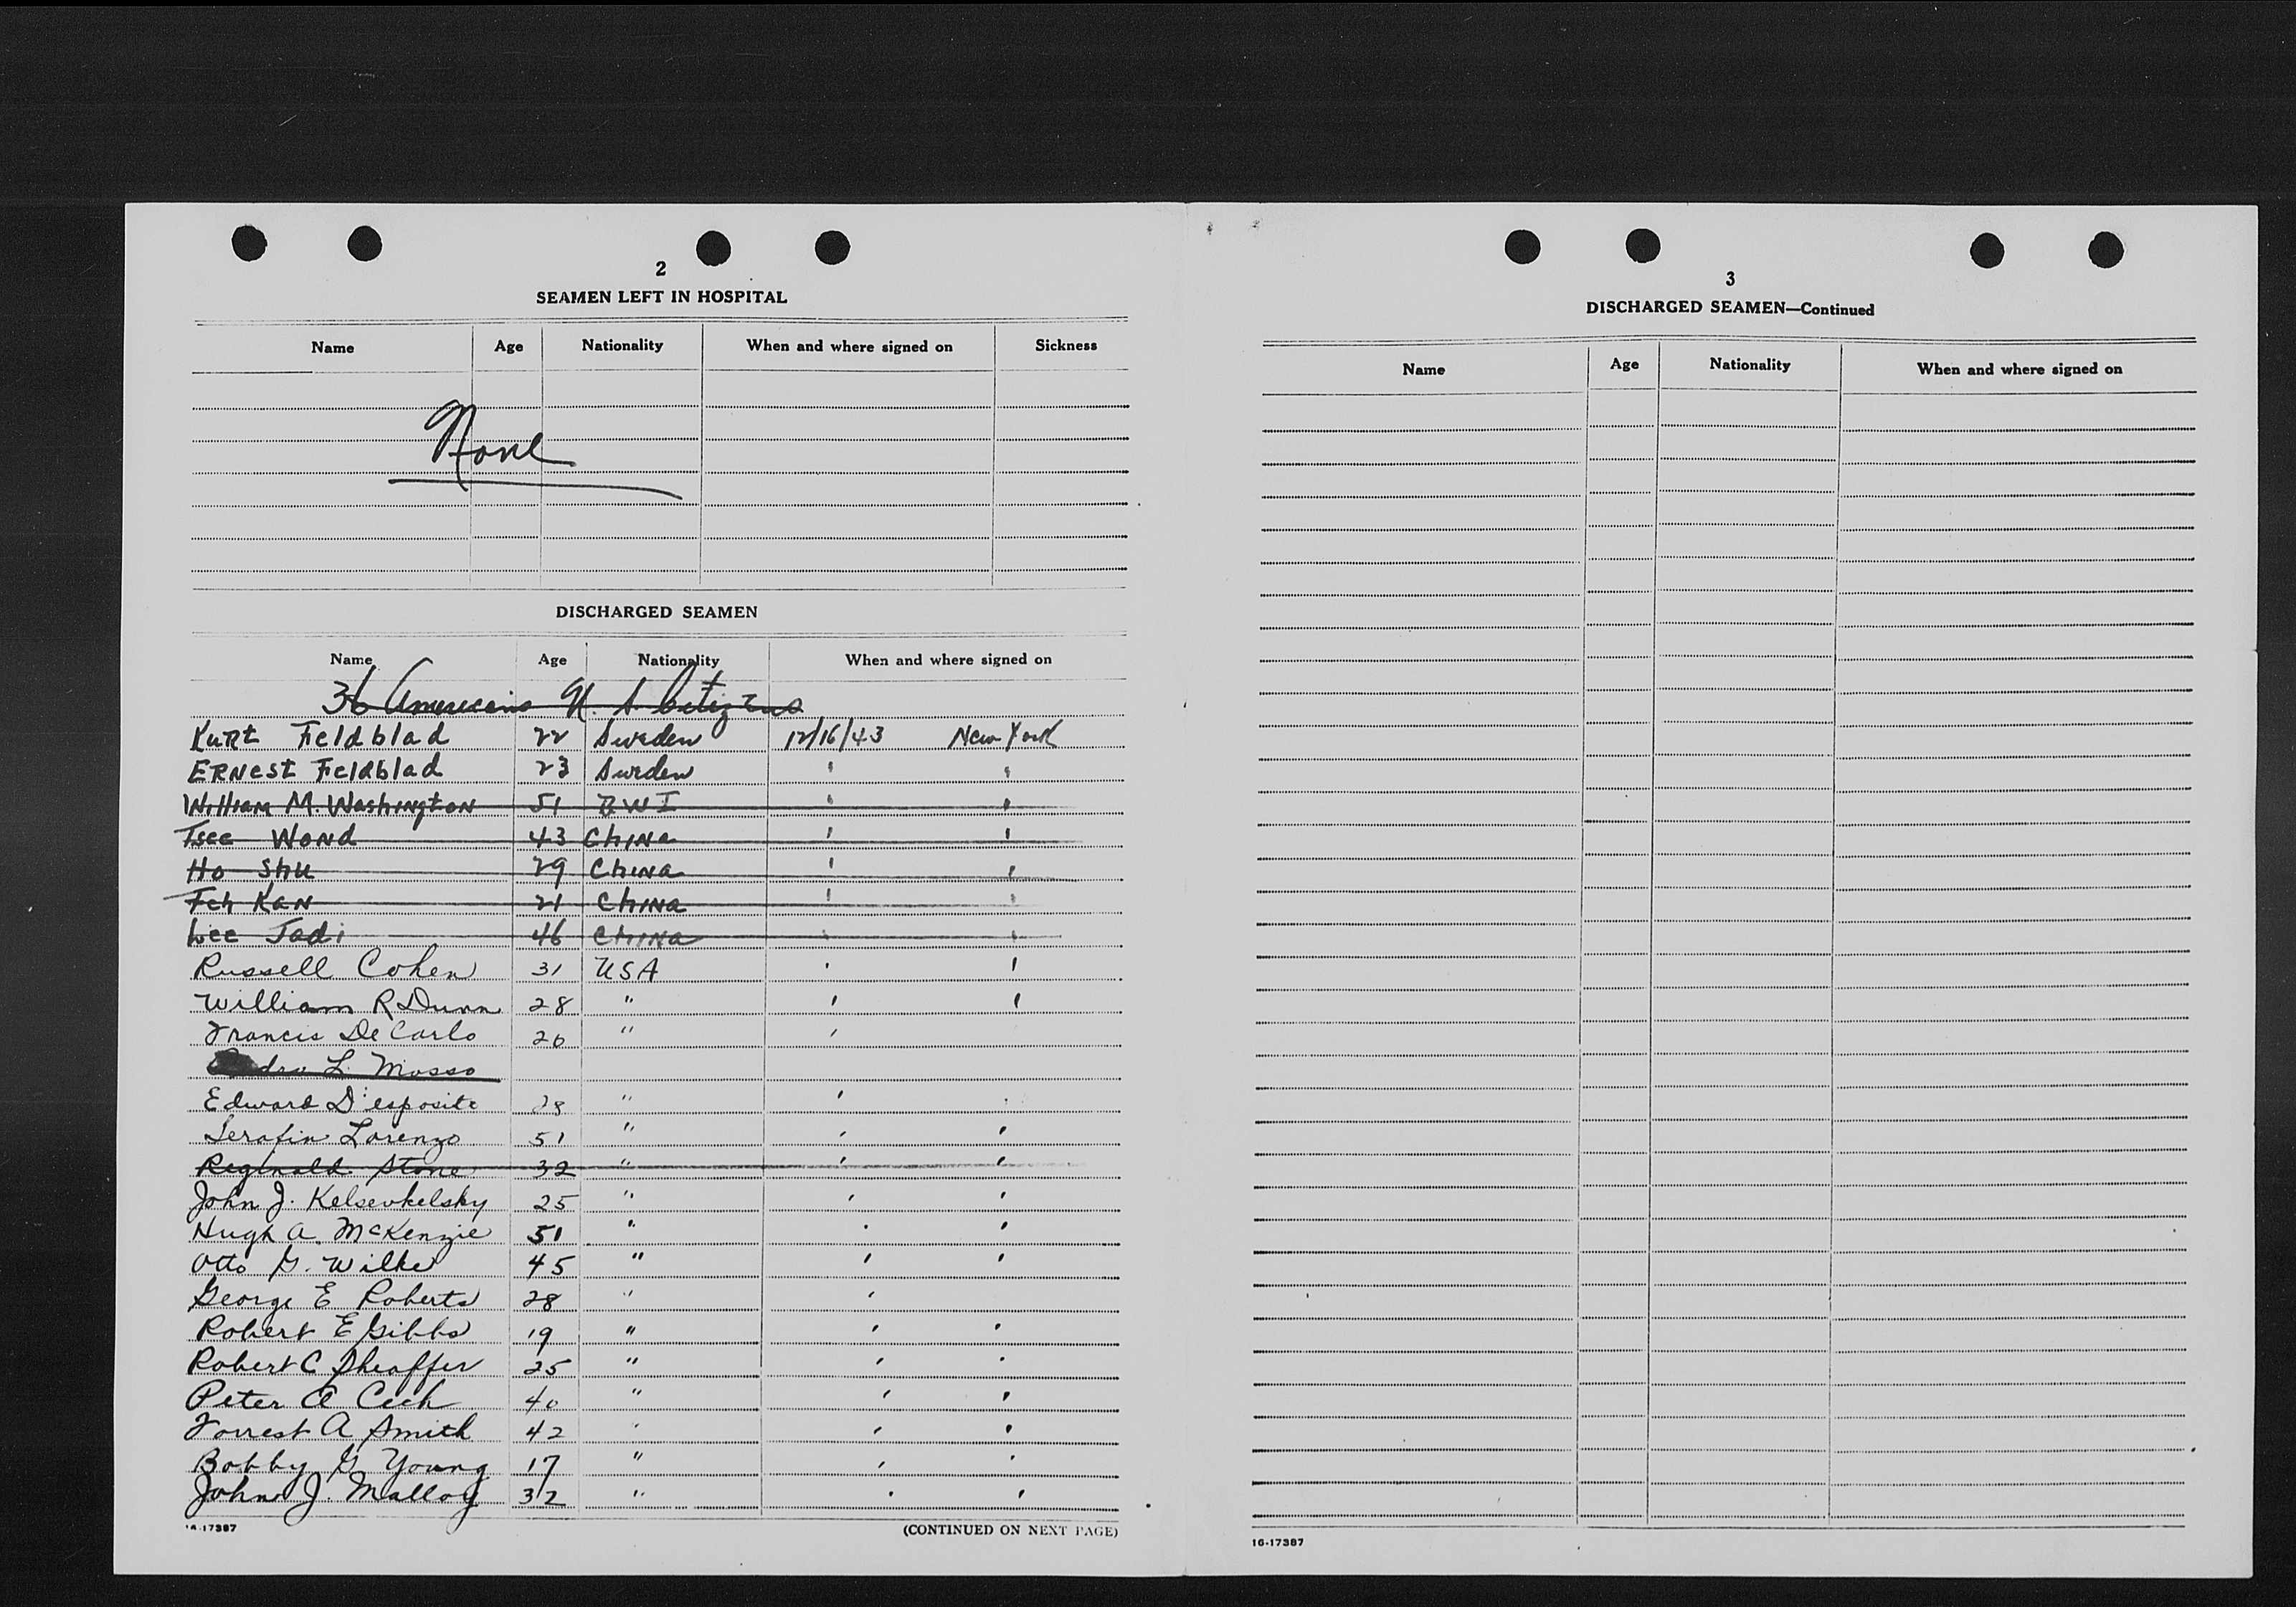 2
SEAMEN LEFT IN HOSPITAL
Name Age Nationality When and where signed on Sickness
None
DISCHARGED SEAMEN
Name Age Nationality When and where signed on
36 Americans U. S. Citizens
Kurt Feldblad 22 Sweden 12/16/43 New York
ERNEST Feldblad 23 Sweden " "
William M. Washington 51 BWI " "
Tsee Wond 43 China " "
Ho Shu 29 China " "
Feh Kan 21 China " "
Lee Jadi 46 China " "
Russell Cohen 31 USA " "
William R Dunn 28 " " "
Francis De Carlo 26 " "
L. Mosso
Edward D'esposite 28 " " "
Serafin Lorenzo 51 " " "
Reginald Stone 32 " " "
John J. Kelsevkelsky 25 " " "
Hugh A. McKenzie 51 " " "
Otto G. Wilke 45 " " "
George E Roberts 28 " "
Robert E Gibbs 19 " " "
Robert C Sheaffer 25 " " "
Peter A Cech 40 " " "
Forrest A Smith 42 " " "
Bobby G Young 17 " " "
John J. Malloy 32 " " "
16-17387
(CONTINUED ON NEXT PAGE)
3
DISCHARGED SEAMEN—Continued
Name Age Nationality When and where signed on
16-17387